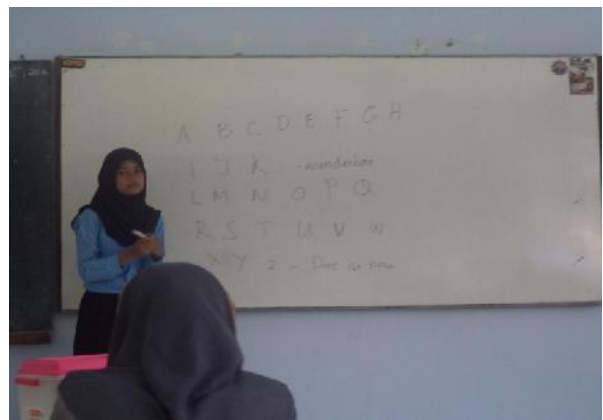 A B C D E F G H
I J K - wunderbar
L M N O P Q
R S T U V W
X Y Z - Das ist